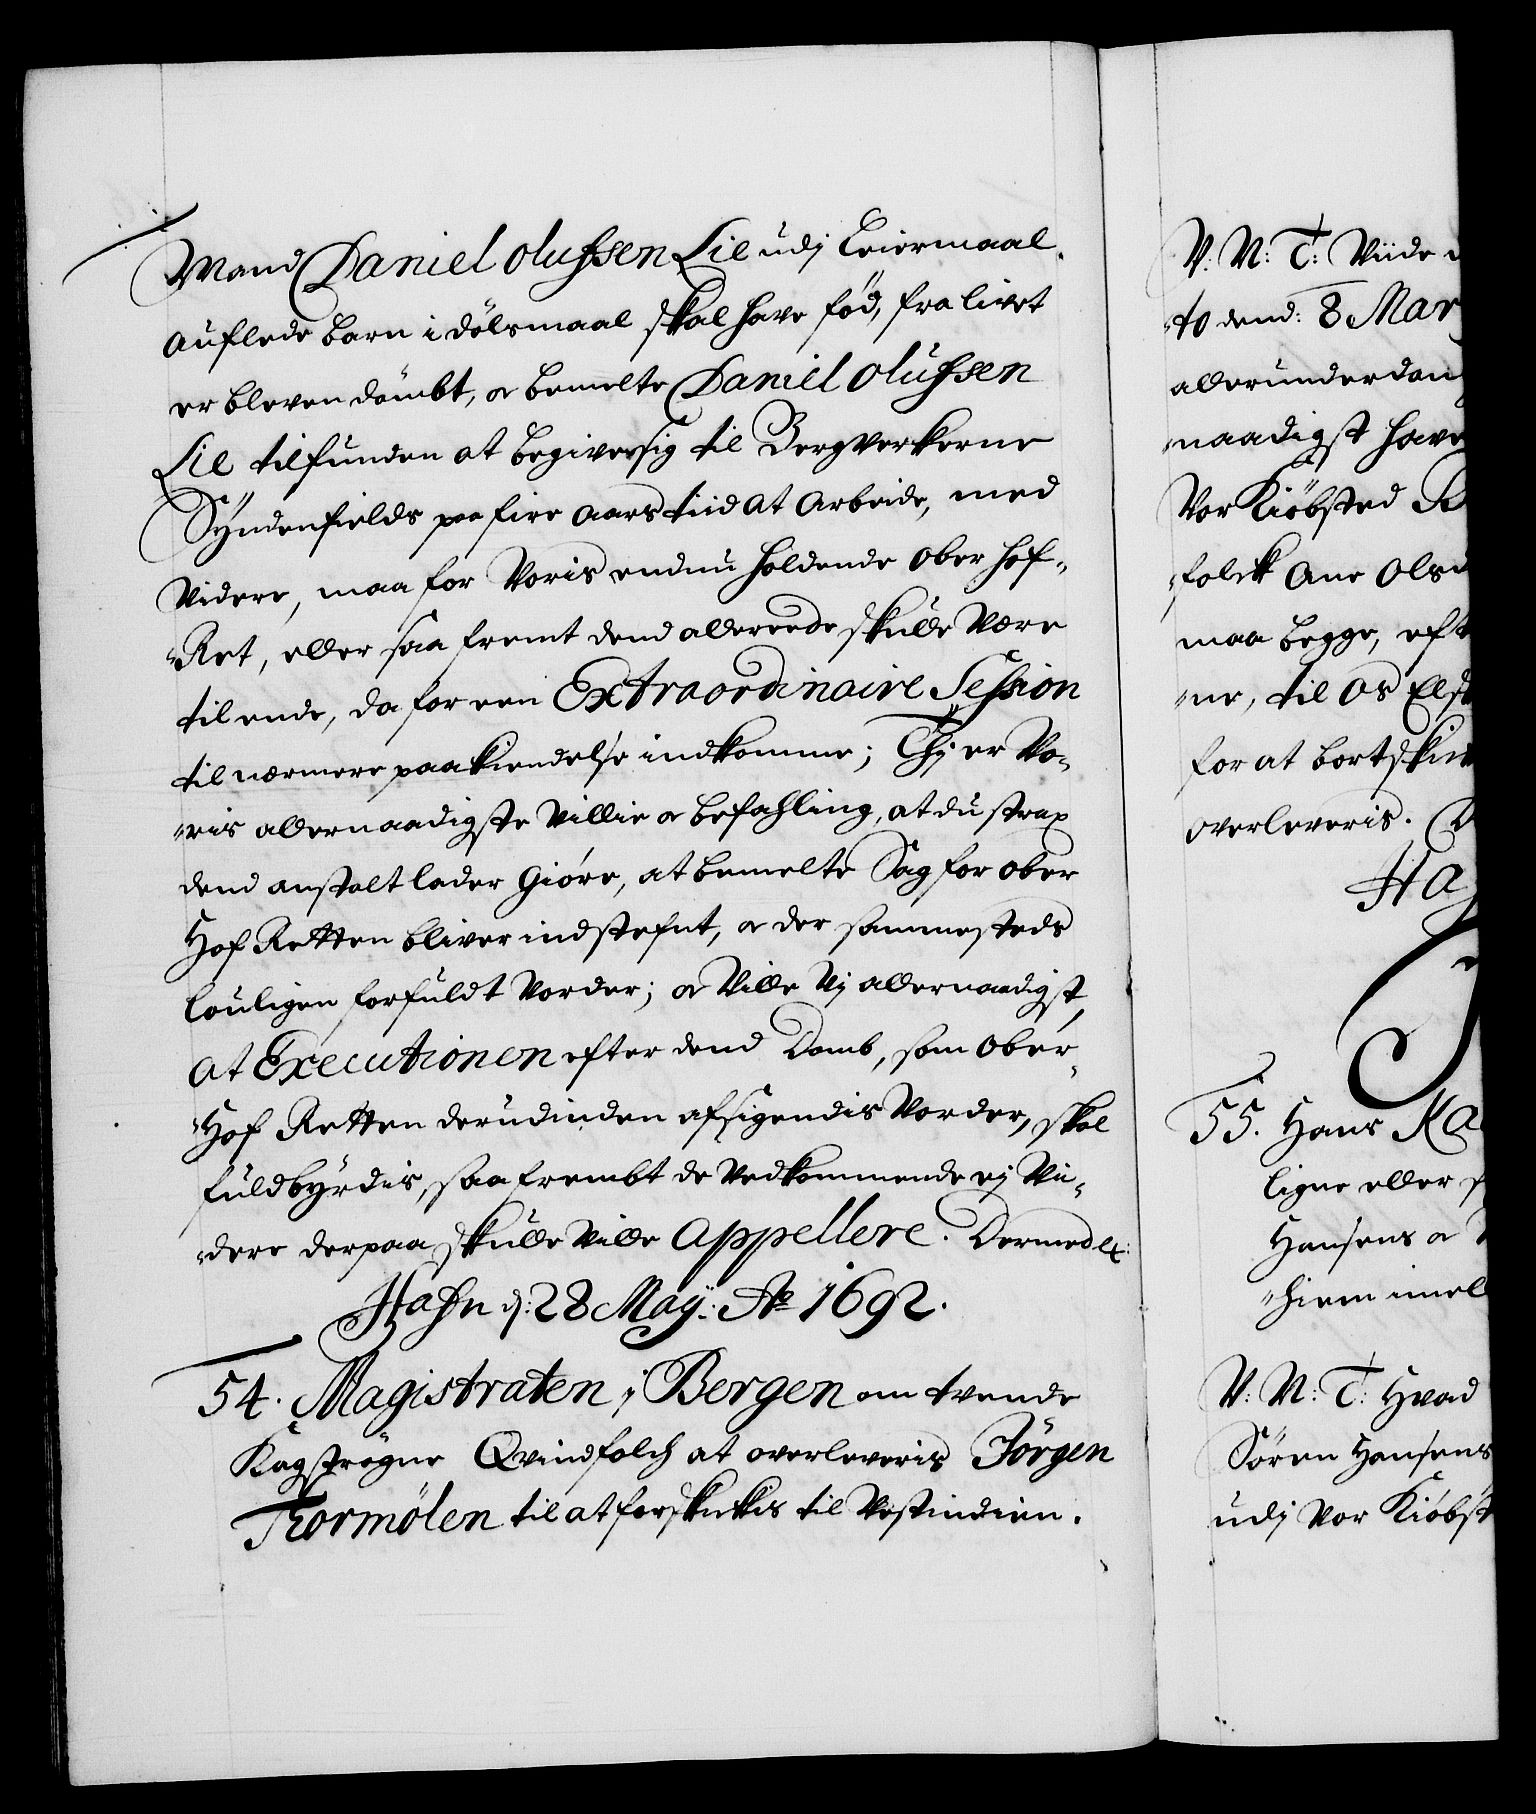 Mand Daniel Olufssen Lie udj Leiermaal
auflede barn i dølsmaal skal have fød, fra livet
er bleven dømbt, oc bemelte Daniel Olufssen
Lie tilfunden at begive sig til Bergverkerne
Syndenfields paa fire aars tiid at arbeide, med
videre, maa for Voris endnu holdende Ober Hof-
Ret, eller saa fremt dend allereede skulle være
til ende, da for een Extraordinaire Session
til nærmere paakiendelse indkomme; Thj er Vo-
ris allernaadigste Villie oc befahling, at du strax
dend anstalt lader giøre, at bemelte Sag for Ober
Hof Retten bliver indstefnt, oc der sammesteds
louligen forfuldt vorder; oc ville Vj allernaadigst,
at Executionen efter dend Domb, som Ober-
Hof Retten derudinden afsigendis vorder, skal
fuldbyrdis, saafrembt de Vedkommende ej vii-
dere derpaa skulle ville appellere. Dermed etc:
Hafn d: 28 Maÿ: Ao 1692.
54. Magistraten j Bergen om tvende
Kagstrøgne Qvindfolch at overleveris Jørgen
Tormølen til at forskikkis til Vestindien.
V: N: T: Viide
to dend: 8 Mar
allerunderdan
naadigst have
Vor Kiøbsted
folck Ane Ols
maa begge, eft
ne, til Os Elsk
for at bortskik
overleveris. D
Ha
55. Hans Ma
ligne eller
Hansens oc
hiem imel
V: N: T: Hvad
Søren Hansens
udj Vor Kiøbst